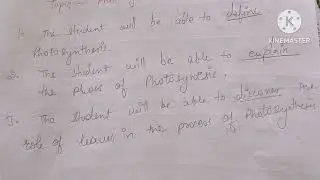 Topic -
1. The student will be able to define
Photosynthesis.
2. The student will be able to explain
the phass of Photosynthesis.
3. The student will be able to discover the
role of leaves in the process of Photosynthesis
KINEMASTER